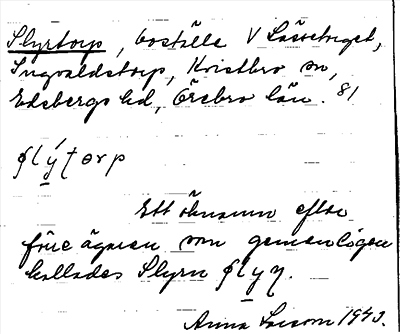 Slyrtorp, boställe V Låsketorget,
Ingvaldstorp, Kvistbro sn,
Edsbergs hd, Örebro län. 81
slýtorp
Ett öknamn efter
förre ägaren som gemenligen
kallades Slyrn
Anna Larsson 1943.